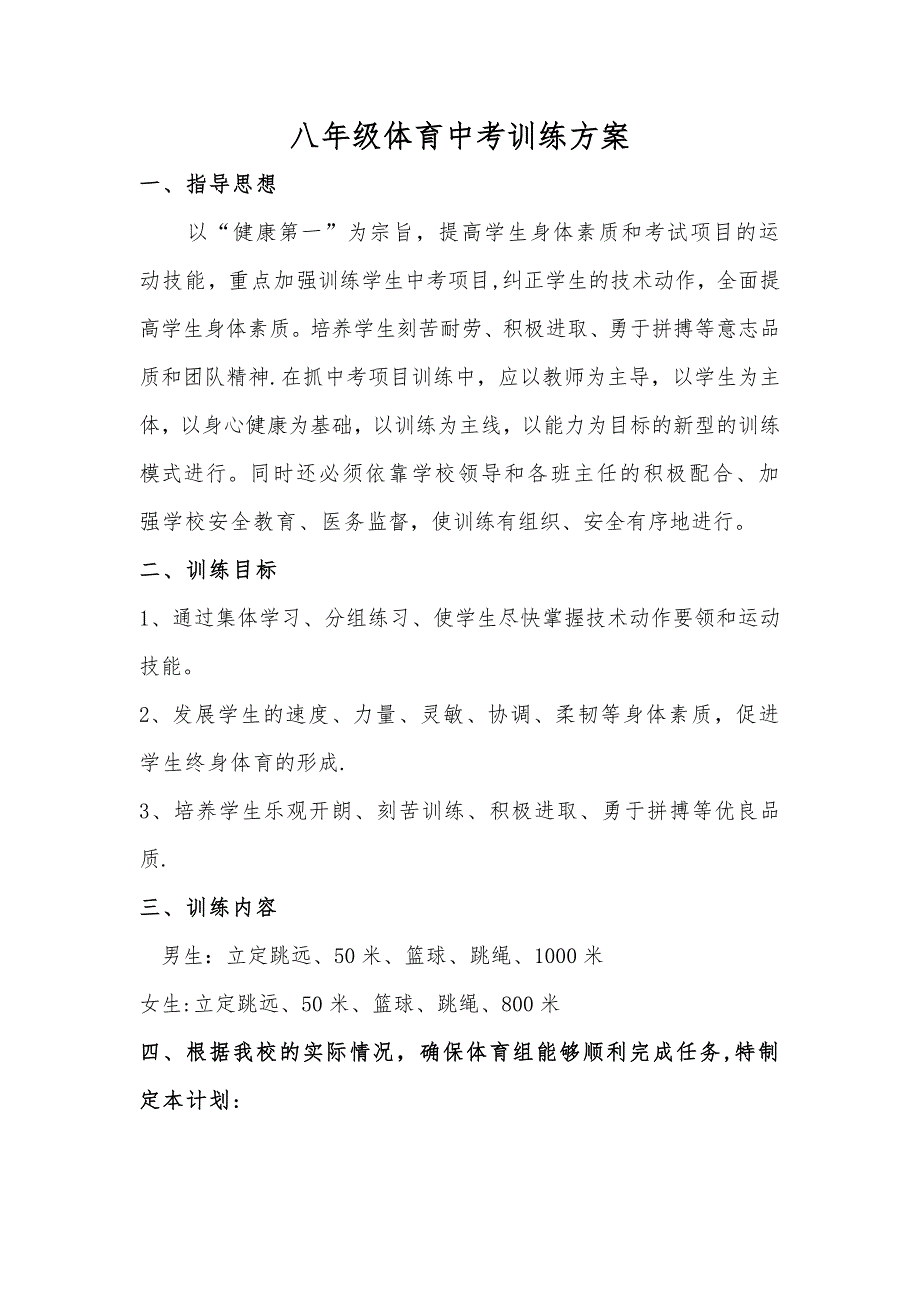 八年级体育中考训练方案
一、指导思想
以“健康第一”为宗旨，提高学生身体素质和考试项目的运
动技能，重点加强训练学生中考项目,纠正学生的技术动作，全面提
高学生身体素质。培养学生刻苦耐劳、积极进取、勇于拼搏等意志品
质和团队精神.在抓中考项目训练中，应以教师为主导，以学生为主
体，以身心健康为基础，以训练为主线，以能力为目标的新型的训练
模式进行。同时还必须依靠学校领导和各班主任的积极配合、加
强学校安全教育、医务监督，使训练有组织、安全有序地进行。
二、训练目标
1、通过集体学习、分组练习、使学生尽快掌握技术动作要领和运动
技能。
2、发展学生的速度、力量、灵敏、协调、柔韧等身体素质，促进
学生终身体育的形成.
3、培养学生乐观开朗、刻苦训练、积极进取、勇于拼搏等优良品
质.
三、训练内容
男生：立定跳远、50 米、篮球、跳绳、1000 米
女生:立定跳远、50 米、篮球、跳绳、800 米
四、根据我校的实际情况，确保体育组能够顺利完成任务,特制
定本计划: